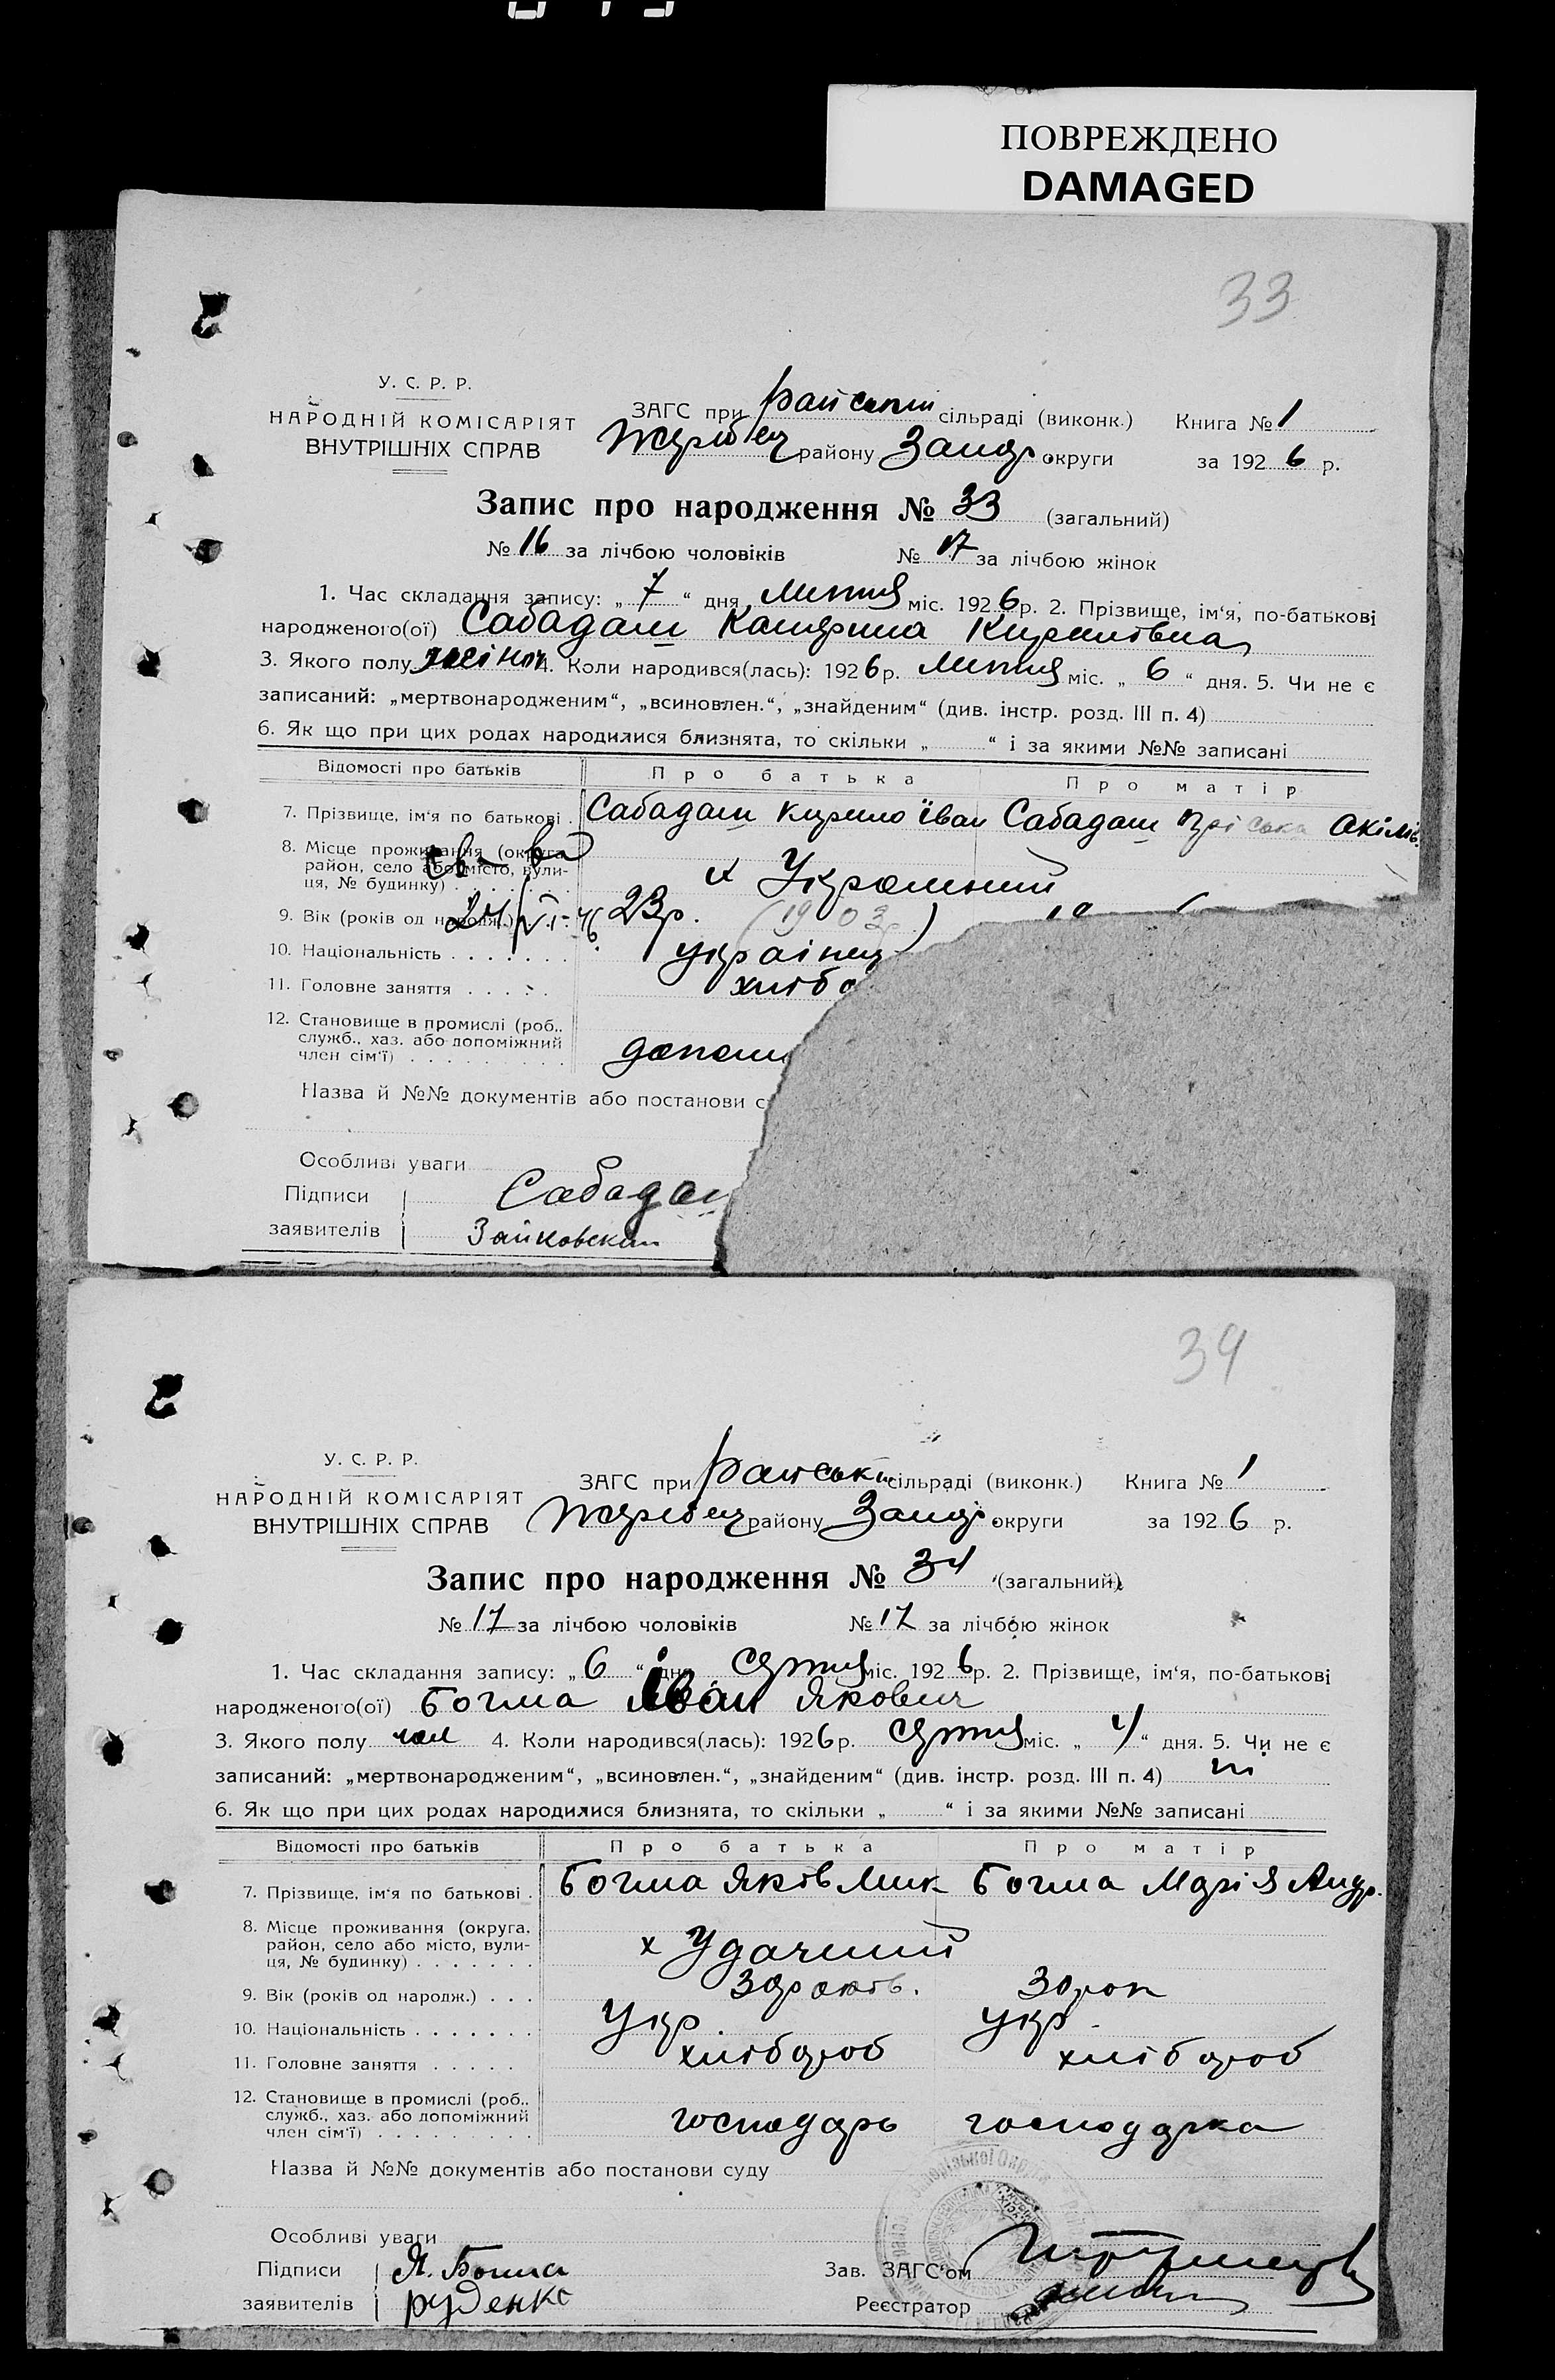 ПОВРЕЖДЕНО
DAMAGED
33
У. С. Р. Р.
НАРОДНІЙ КОМІСАРІЯТ
ВНУТРІШНІХ СПРАВ
ЗАГС при Райськім сільраді (виконк.) Книга № 1
Жереб'ец району Запор. округи за 1926 р.
Запис про народження № 33 (загальний)
№ 16 за лічбою чоловіків № 17 за лічбою жінок
1. Час складання запису: „7“ дня Лютня міс. 1926 р. 2. Прізвище, ім‘я, по-батькові
народженого(ої) Сабадаш Катерина Кирилівна
3. Якого полу жіноч 4. Коли народився(лась): 1926 р. Лютня міс. „6“ дня. 5. Чи не є
записаний: „мертвонародженим“, „всиновлен.“, „знайденим“ (див. інстр. розд. III п. 4)
6. Як що при цих родах народилися близнята, то скільки „ “ і за якими №№ записані
Відомості про батьків Про батька Про матір
7. Прізвище, ім‘я по батькові . Сабадаш Кирило Іван Сабадаш Акімів.
8. Місце проживання (округа,
район, село або місто, вули-
ця, № будинку) х Украіний
св-во
24/VI-46
9. Вік (років од народж.) 23р. (1903р.)
10. Національність українец
11. Головне заняття хлібо
12. Становище в промислі (роб.,
служб., хаз. або допоміжний
член сім‘ї) допом
Назва й №№ документів або постанови с
Особливі уваги
Підписи Сабадаш
заявителів Зайковский
34
У. С. Р. Р.
НАРОДНІЙ КОМІСАРІЯТ
ВНУТРІШНІХ СПРАВ
ЗАГС при Райськім сільраді (виконк.) Книга № 1
Жереб'ец району Запор. округи за 1926 р.
Запис про народження № 34 (загальний)
№ 17 за лічбою чоловіків № 17 за лічбою жінок
1. Час складання запису: „6“ дня міс. 1926 р. 2. Прізвище, ім‘я, по-батькові
народженого(ої) Богма Іван Якович
3. Якого полу чол 4. Коли народився(лась): 1926 р. міс. „4“ дня. 5. Чи не є
записаний: „мертвонародженим“, „всиновлен.“, „знайденим“ (див. інстр. розд. III п. 4) ні
6. Як що при цих родах народилися близнята, то скільки „ “ і за якими №№ записані
Відомості про батьків Про батька Про матір
7. Прізвище, ім‘я по батькові . Богма Яків Мик Богма Марія Андр.
8. Місце проживання (округа,
район, село або місто, вули-
ця, № будинку) х Удачний
9. Вік (років од народж.) 30 рок
10. Національність Укр. Укр.
11. Головне заняття хлібороб хлібороб
12. Становище в промислі (роб.,
служб., хаз. або допоміжний
член сім‘ї) господарь господарка
Назва й №№ документів або постанови суду
Особливі уваги
Підписи Я. Богма Зав. ЗАГС‘ом
заявителів Руденко Реєстратор